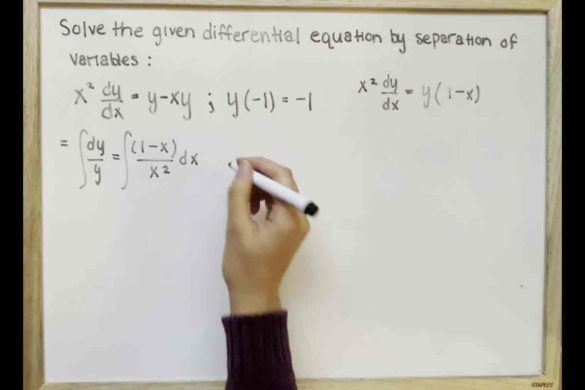 Solve the given differential equation by separation of
variables :
x² dy/dx = y-xy ; y(-1) = -1
x² dy/dx = y(1-x)
= ∫ dy/y = ∫ (1-x)/x² dx
STAPLES